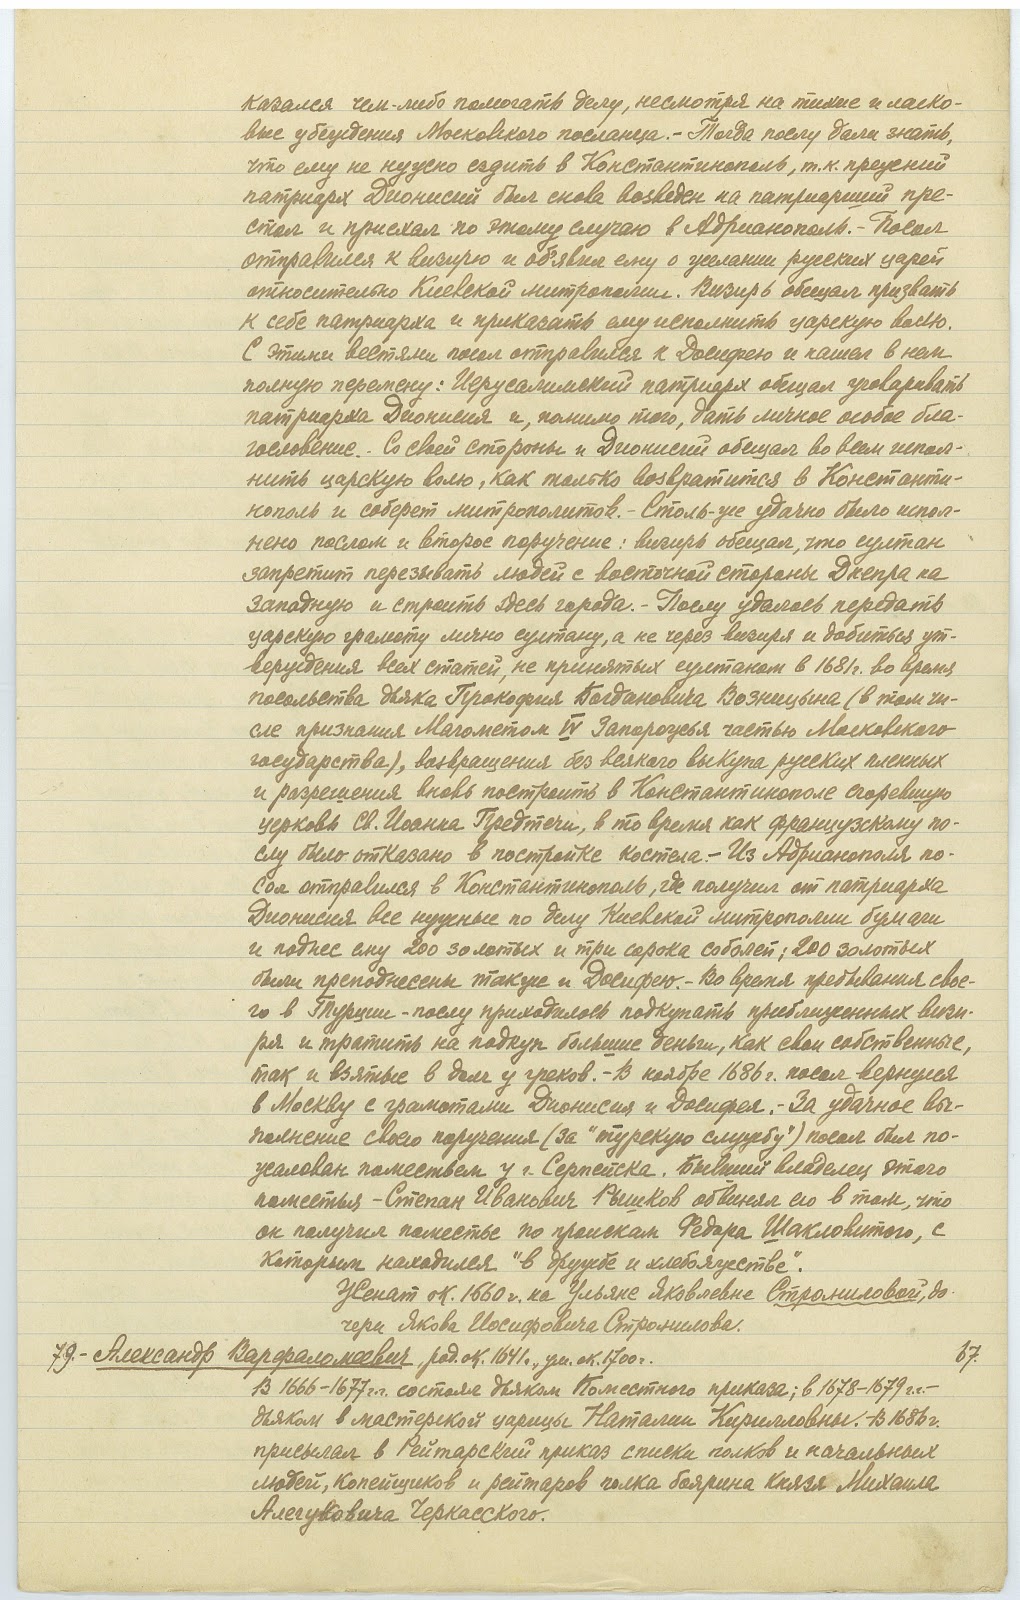 казался чем-либо помогать делу, несмотря на тихие и ласко-
вые убеждения Московского посланца.- Тогда послу дали знать,
что ему не нужно ездить в Константинополь, т.к. прежний
патриарх Дионисий был снова возведен на патриарший пре-
стол и приехал по этому случаю в Адрианополь.- Посол
отправился к визирю и объявил ему о желании русских царей
относительно Киевской митрополии. Визирь обещал призвать
к себе патриарха и приказать ему исполнить царскую волю.
С этими вестями посол отправился к Досифею и нашел в нем
полную перемену: Иерусалимский патриарх обещал уговаривать
патриарха Дионисия и, помимо того, дать личное особое бла-
гословение.- Со своей стороны и Дионисий обещал во всем испол-
нить царскую волю, как только возвратится в Константи-
нополь и соберет митрополитов.- Столь-же удачно было испол-
нено послом и второе поручение: визирь обещал, что султан
запретит перезывать людей с восточной стороны Днепра на
западную и строить здесь города.- Послу удалось передать
царскую грамоту лично султану, а не через визиря и добиться ут-
верждения всех статей, не принятых султаном в 1681г. во время
посольства дьяка Прокофия Богдановича Возницына (в том чи-
сле признания Магометом IV Запорожья частью Московского
государства), возвращения без всякого выкупа русских пленных
и разрешения вновь построить в Константинополе сгоревшую
церковь Св. Иоанна Предтечи, в то время как французскому по-
слу было отказано в постройке костела.- Из Адрианополя по-
сол отправился в Константинополь, где получил от патриарха
Дионисия все нужные по делу Киевской митрополии бумаги
и поднес ему 200 золотых и три сорока соболей; 200 золотых
были преподнесены также и Досифею.- Во время пребывания свое-
го в Турции - послу приходилось подкупать приближенных визи-
ря и тратить на подкуп большие деньги, как свои собственные,
так и взятые в долг у греков.- В ноябре 1686г. посол вернулся
в Москву с грамотами Дионисия и Досифея.- За удачное вы-
полнение своего поручения (за "турскую службу") посол был по-
жалован поместьем у г. Серпейска. Бывший владелец этого
поместья - Степан Иванович Рышков обвинял его в том, что
он получил поместье по проискам Федора Шакловитого, с
которым находился "в дружбе и хлебоячестве".
Женат ок. 1660г. на Ульяне Яковлевне Стромиловой, до-
чери Якова Иосифовича Стромилова.
79.- Александр Варфаломеевич, род. ок. 1641г., ум. ок. 1700г. 67.
В 1666-1677г.г. состоял дьяком Поместного приказа; в 1678-1679г.г.-
дьяком в мастерской царицы Наталии Кирилловны.- В 1686г.
присылал в Рейтарский приказ списки полков и начальных
людей, копейщиков и рейтаров полка боярина князя Михаила
Алегуковича Черкасского.